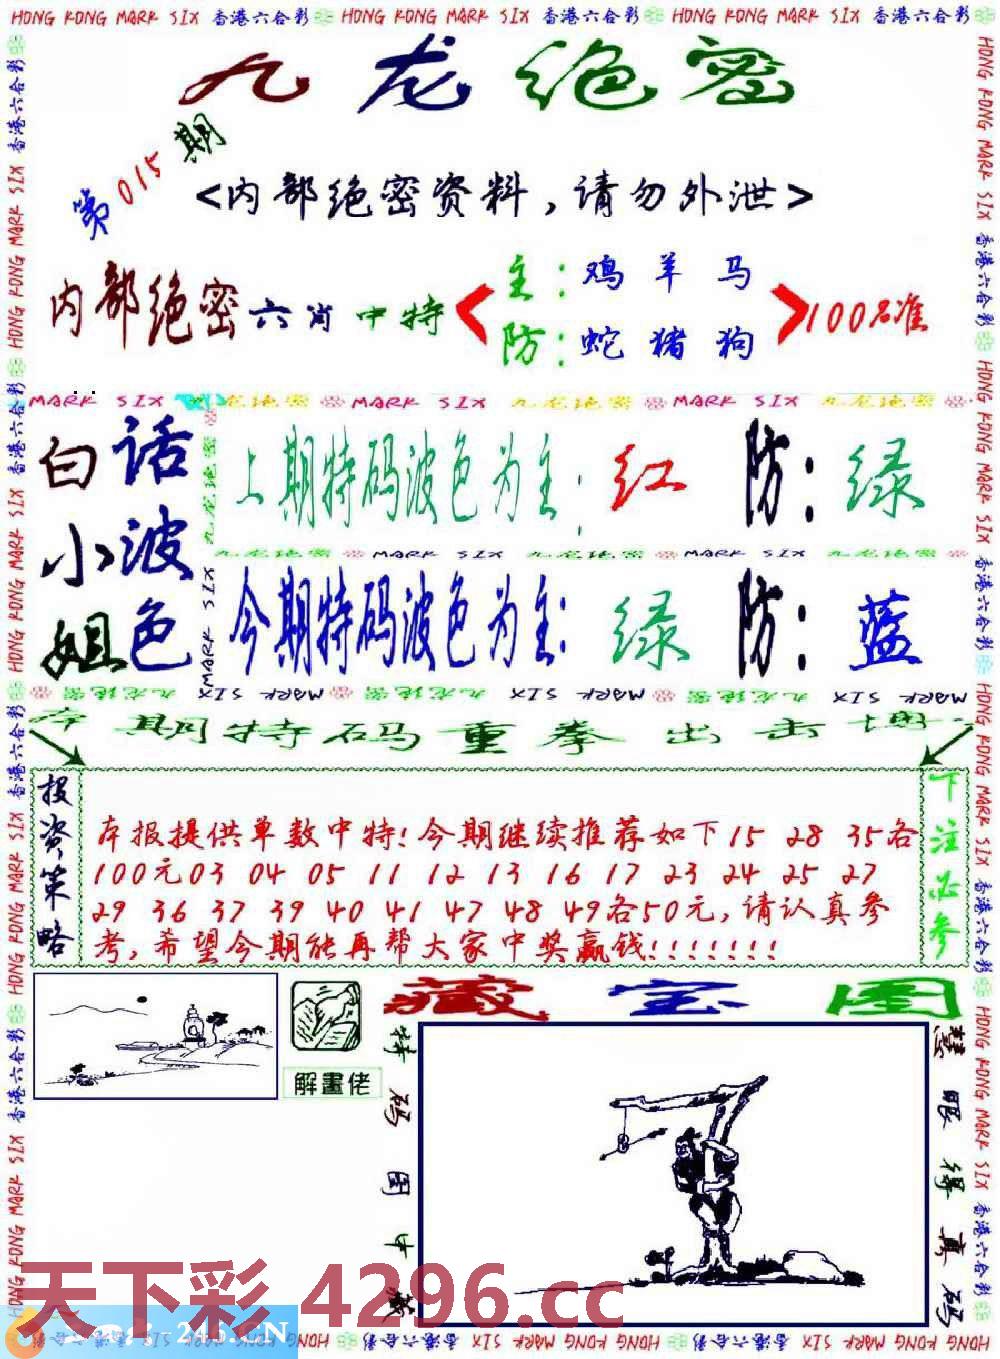 HONG KONG MARK SIX 香港六合彩 HONG KONG MARK SIX 香港六合彩 HONG KONG MARK SIX 香港六合彩
九龙绝密
第015期
<内部绝密资料,请勿外泄>
内部绝密六肖中特
主:鸡羊马
防:蛇猪狗
100%准
MARK SIX 九龙绝密 MARK SIX 九龙绝密 MARK SIX 九龙绝密
白小姐
话波色
上期特码波色为主:红 防:绿
九龙绝密 MARK SIX 九龙绝密 MARK SIX 九龙绝密
今期特码波色为主:绿 防:蓝
本期特码重拳出击
投资策略
本报提供单数中特!今期继续推荐如下15 28 35各
100元03 04 05 11 12 13 16 17 23 24 25 27
29 36 37 39 40 41 47 48 49各50元,请认真参
考,希望今期能再帮大家中奖赢钱!!!!!!!
下注必参
藏宝图
解畫佬
特码图中藏
慧眼得真码
天下彩 4296.cc
246.CN